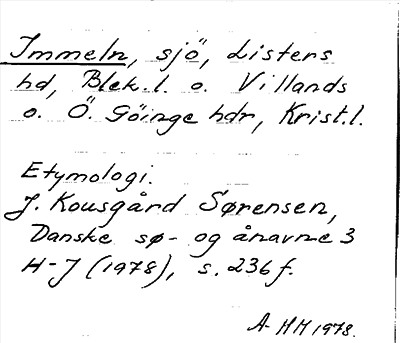 Immeln, sjö, Listers
hd, Blek.l. o. Villands
o. Ö. Göinge hdr, Krist.l.
Etymologi.
J. Kousgård Sørensen,
Danske sø- og ånavne 3
H-J (1978), s. 236 f.
A HH 1978.